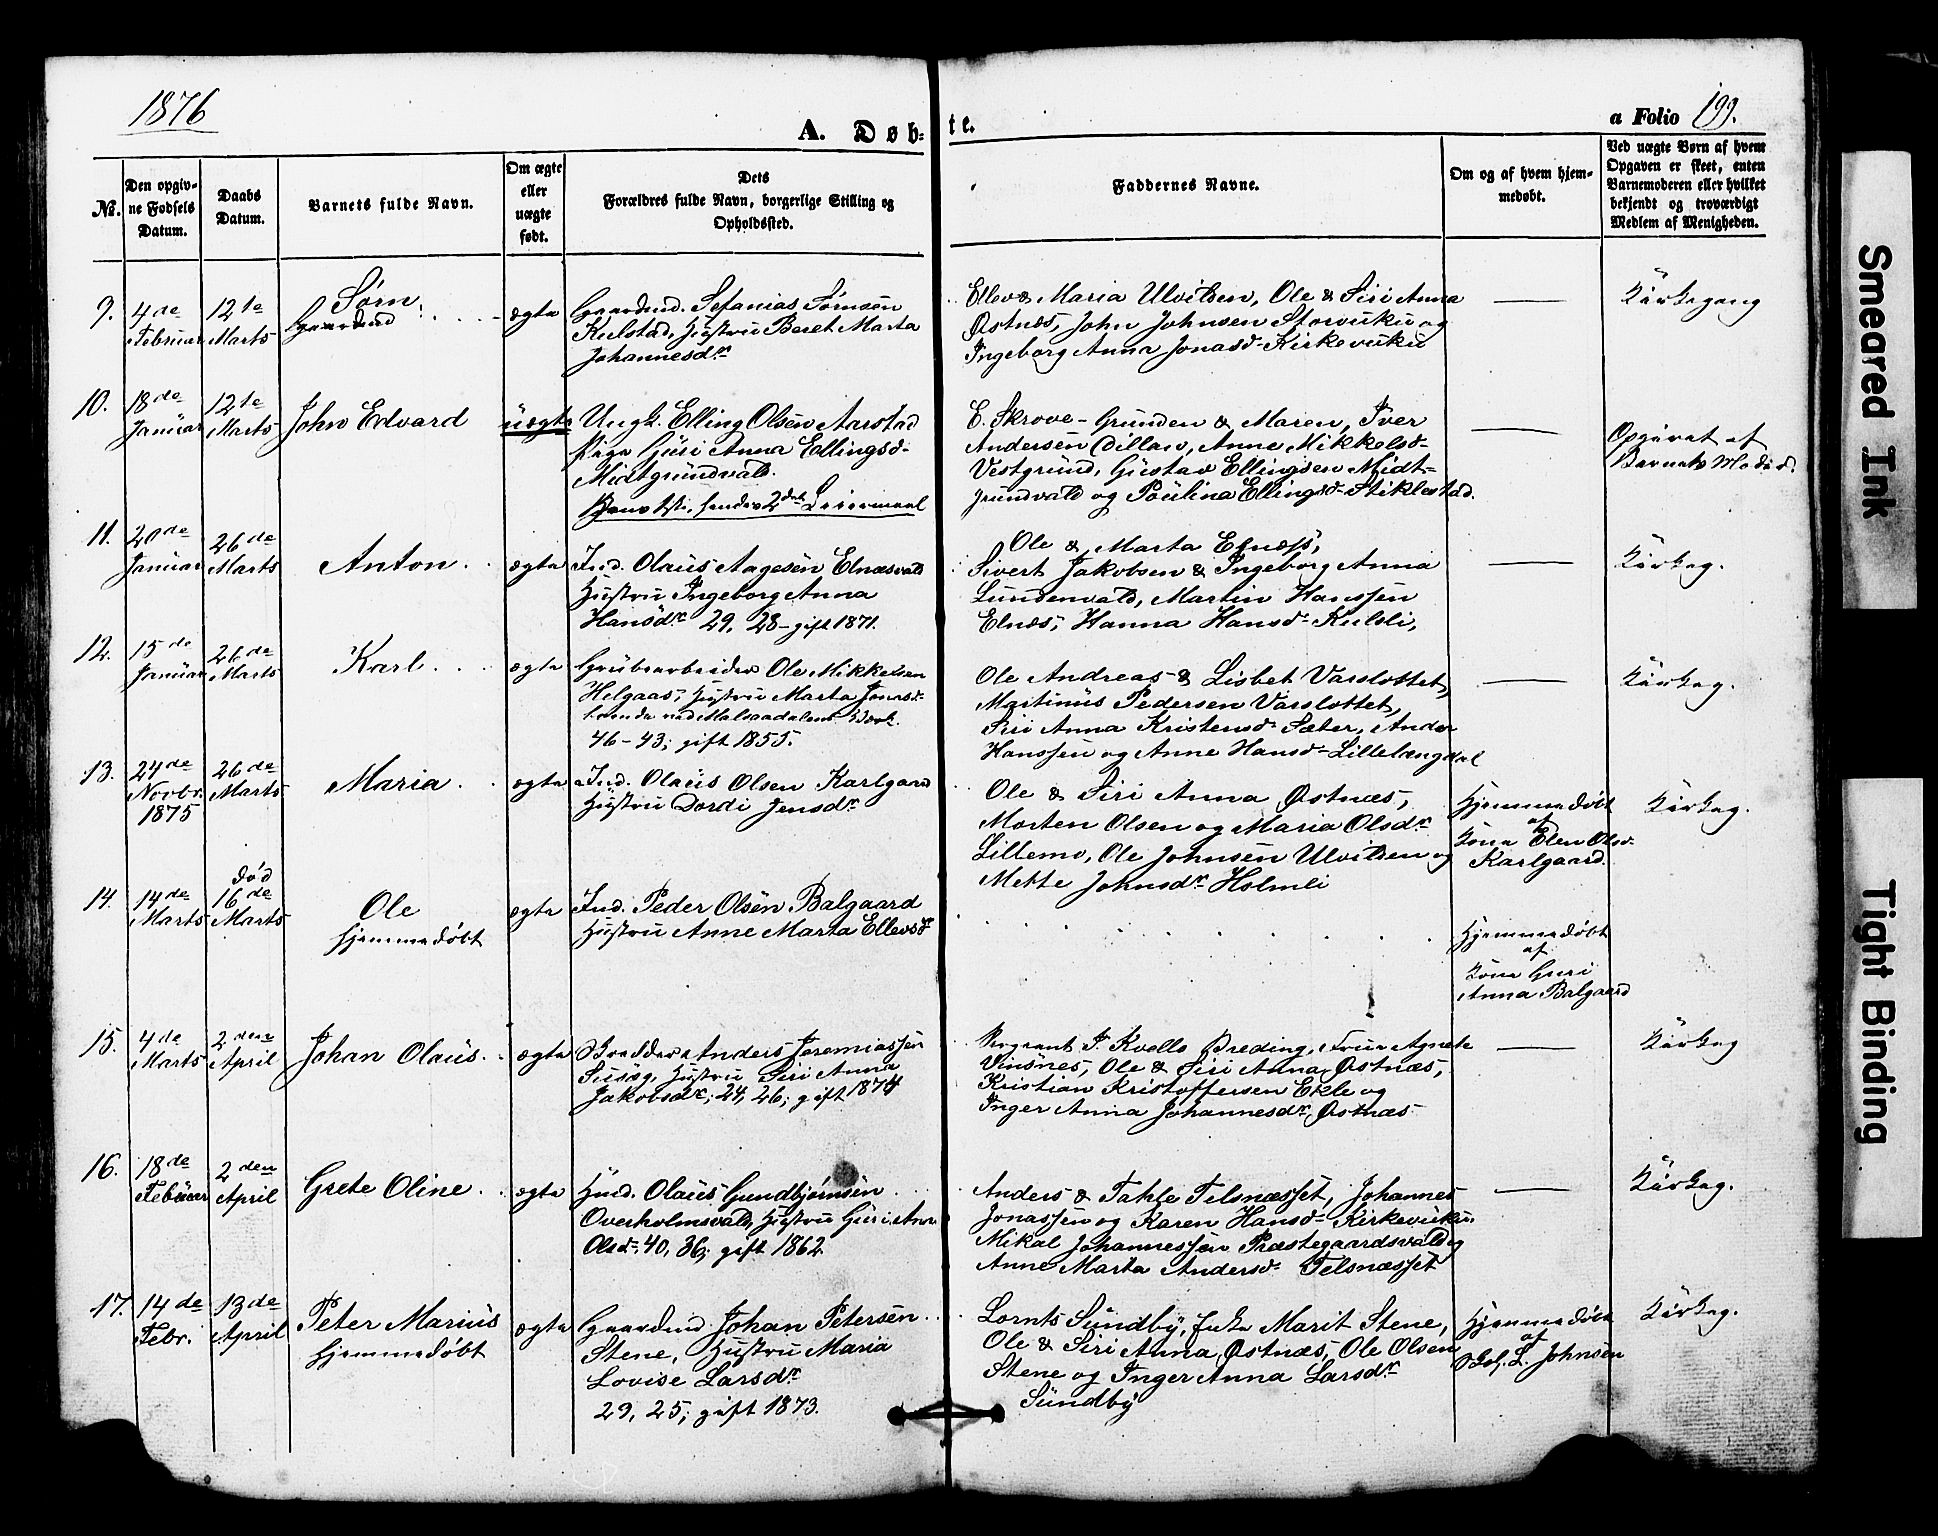 1876
A. Døb-
te.
a Folio 199.
No.
Den opgiv-
ne Fødsels
Datum.
Daabs
Datum.
Barnets fulde Navn.
Om ægte
eller
uægte
født.
Dets
Forældres fulde Navn, borgerlige Stilling og
Opholdssted.
Faddernes Navne.
Om og af hvem hjem-
medøbt.
Ved uægte Børn af hvem
Opgaven er skeet, enten
Barnemoderen eller hvilket
bekjendt og troværdigt
Medlem af Menigheden.
9.
4de
Februar
12te
Marts
Sørn
ægte
Gaardmd. Sefanias Sørnsen
Kulstad, Hustru Beret Marta
Johannesdr
Ellev & Maria Ulvilden, Ole & Siri Anna
Østnæs, John Johnsen Storvuku og
Ingeborg Anna Jonasd- Kirkevuku
Kirkegang
10.
18de
Januar
12te
Marts
John Edvard
uægte
Ungk. Elling Olsen Aarstad
Pige Guri Anna Ellingsd-
Midtgrundvald.
hendes 2det Leiermaal
E. Skrove-Grunden & Maren, Iver
Andersen Dillan, Anne Mikkelsd-
Vestgrund, Gustav Ellingsen Midt-
grundvald og Paulina Ellingsd- Stiklestad.
Opgivet af
Barnets Moder.
11.
20de
Januar
26de
Marts
Anton
ægte
Ind. Olaus Aagesen Elnæsvald
Hustru Ingeborg Anna
Hansdr 29, 28 - gift 1871.
Ole & Marta Elnæss,
Sivert Jakobsen & Ingeborg Anna
Lundenvald, Martin Hanssen
Elnæs, Hanna Hansd- Kulsli,
Kirkeg.
12.
15de
Januar
26de
Marts
Karl
ægte
Grubearbeider Ole Mikkelsen
Helgaas, Hustru Marta Jonasd-
boende ved Malsaadalens Værk.
46-43; gift 1855.
Ole Andreas & Lisbet Varslottet,
Martinus Pedersen Varslottet,
Siri Anna Kristensd- Sæter, Ander
Hanssen og Anne Hansd- Lillelængdal
Kirkeg.
13.
24de
Novbr.
1875
26de
Marts
Maria
ægte
Ind. Olaus Olsen Karlgaard
Hustru Dordi Jensdr
Ole & Siri Anna Østnæs,
Morten Olsen og Maria Olsdr
Lillemo, Ole Johnsen Ulvilden og
Mette Johnsdr Holmli
Hjemmedøbt
af
Kona Elen Olsd-
Karlgaard.
Kirkeg.
14.
14de
Marts
død
16de
Marts
Ole
hjemmedøbt
ægte
Ind. Peder Olsen Balgaard
Hustru Anne Marta Ellevsd-
Hjemmedøbt
af
Kona Guri
Anna Balgaard
15.
4de
Marts
2den
April
Johan Olaus
ægte
Anders Jeremiassen
Susæg, Hustru Siri Anna
Jakobsdr; 24, 26; gift 1874
P. Kvello Breding, Frue Agnete
Vinsnes, Ole & Siri Anna Østnæs,
Kristian Kristoffersen Ekle og
Inger Anna Johannesdr Østnæs
Kirkeg
16.
18de
Februar
2den
April
Grete Oline
ægte
Hmd. Olaus Gundbjørnsen
Overholmsvald, Hustru Guri Anna
Olsd- 40, 36; gift 1862.
Anders & Tahle Telsnæsset, Johannes
Jonassen og Karen Hansd- Kirkevuku,
Mikal Johannessen Præstegaardsvald og
Anne Marta Andersd- Telsnæsset
Kirkeg.
17.
14de
Febr.
13de
April
Peter Marius
hjemmedøbt
ægte
Gaardmd Johan Petersen
Stene, Hustru Maria
Lovise Larsdr
29, 25; gift 1873.
Lornts Sundby, Enke Marit Stene,
Ole & Siri Anna Østnæs, Ole Olsen
Stene og Inger Anna Larsdr
Sundby
Hjemmedøbt
af
L. Johnsen
Kirkeg.
Smeared Ink
Tight Binding